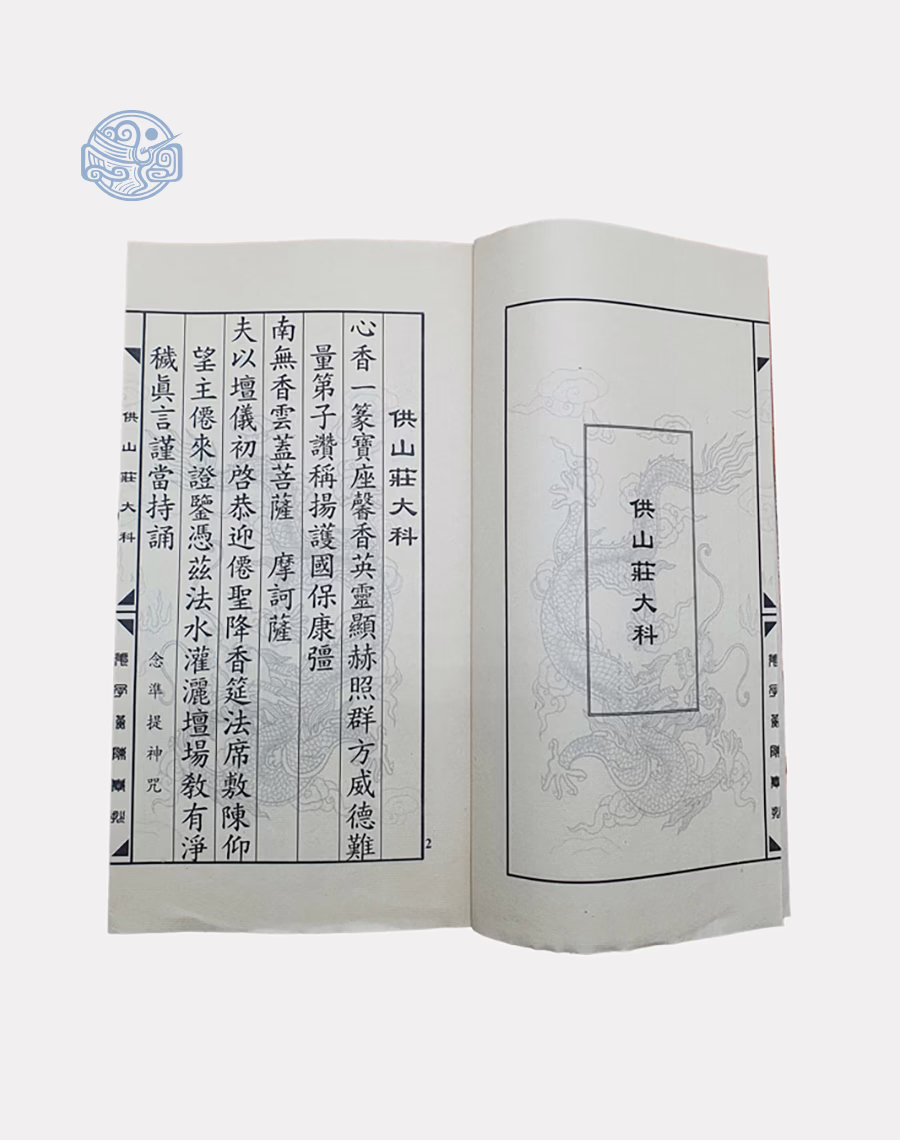 供山莊大科
供山莊大科
心香一篆寶座馨香英靈顯赫照群方威德難
量第子讚稱揚護國保康彊
南無香雲蓋菩薩　摩訶薩
夫以壇儀初啓恭迎僊聖降香筵法席敷陳仰
望主僊來證鑒憑茲法水灌灑壇場教有淨
穢眞言謹當持誦　念準提神咒
供山莊大科
2